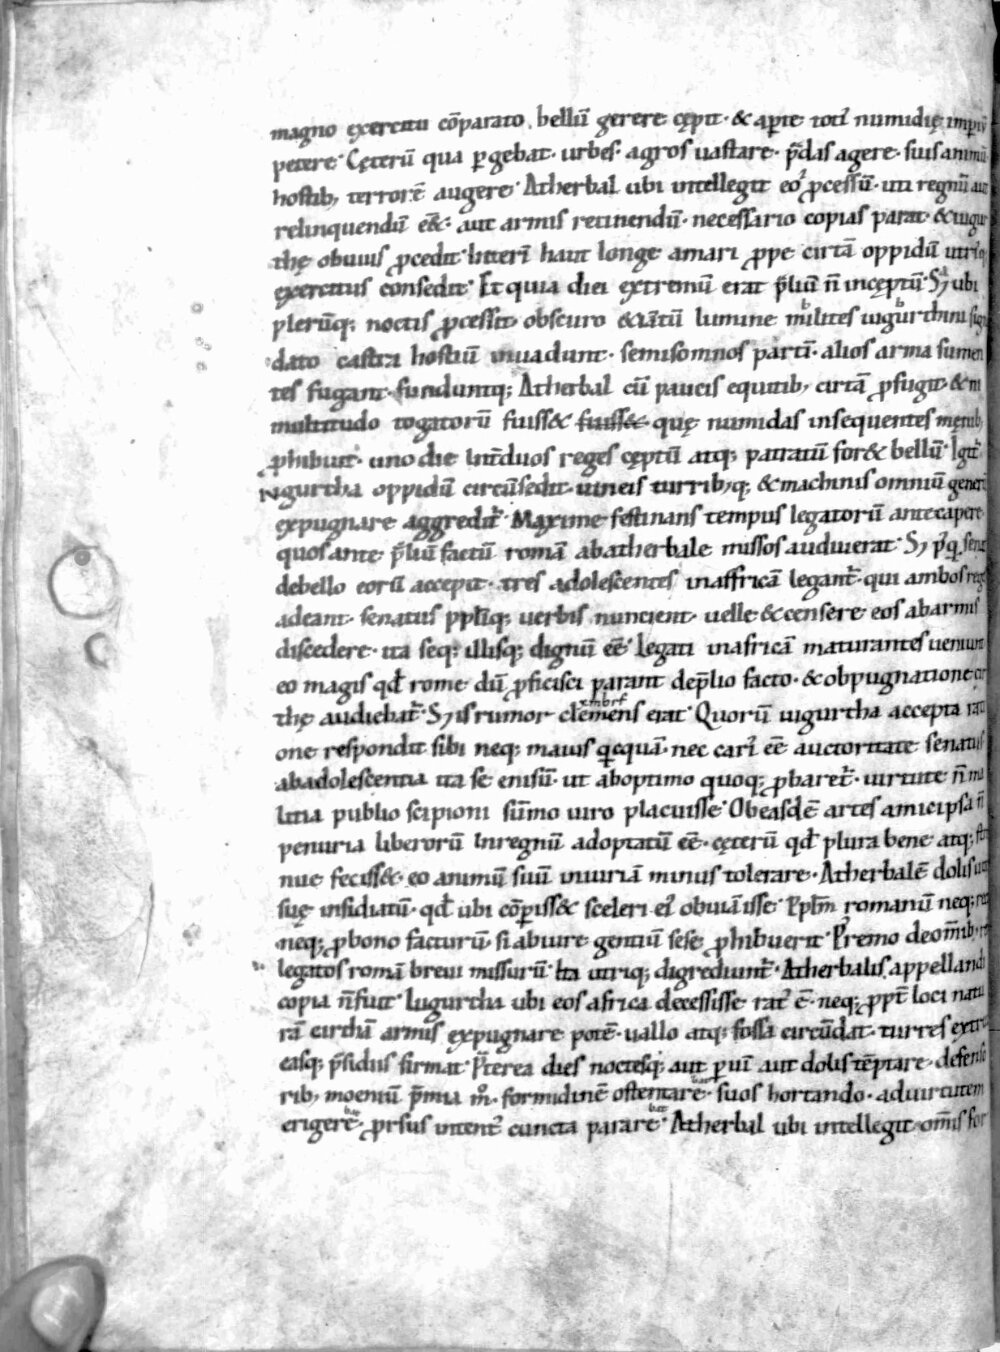 magno exercitu cōparato bellū gerere cępit· & aꝑte totī numidię imperiū
petere· Cęterū qua ꝑgebat· urbes· agros uastare· p̄das agere· suis animū
hostib; terrorē augere· Atherbal ubi intellegit eo ꝓcessū· uti regnū aut
relinquendū eēt· aut armis retinendū· necessario copias parat· & iugur
thę obuius ꝓcedit· Interī haut longe amari ꝓpe cirtā oppidū utriꝰq;
exercitus consedit· Et quia diei extremū erat p̄liū n̄ inceptū· S; ubi
plerūq; noctis ꝓcessit· obscuro & iātū lumine milites iugurthini signo
dato castra hostiū inuadunt· semisomnos partī· alios arma sumen
tes fugant· funduntq; Atherbal cū paucis equitib; cirtā ꝓfugit· & ni
multitudo togatorū fuiss& fuiss& quę numidas insequentes męnib;
ꝓhibuit· uno die int̄ duos reges cęptū atq; patratū for& bellū· Igit̄
iugurtha oppidū circūsedit· uineis turrib;q; & machinis omniū generū
expugnare aggredit̄· Maxime festinans tempus legatorū antecapere
quos ante p̄liū factū romā abatherbale missos audiuerat· S; pꝰq̄ senatꝰ
debello eorū accepit· tres adolescentes inaffricā legant̄· qui ambos reges
adeant· senatus pplīq; uerbis nuncient· uelle & censere eos abarmis
discedere· ita seq; illisq; dignū eē· Legati inafricā maturantes ueniunt
eo magis qd̄ rome dū ꝓficisci parant dep̄lio facto· & obpugnatione cir
thę audiebat̄· S; is rumor clemens erat· Quorū iugurtha accepta rati
one respondit sibi neq; maius q̄cquā· nec cariꝰ eē auctoritate senatus
abadolescentia ita se enisū· ut aboptimo quoq; ꝓbaret̄· uirtute n̄ ma
litia publio scipioni sūmo uiro placuisse· Obeasdē artes amicipsa n̄
penuria liberorū Inregnū adoptatū eē· cęterū qd̄ plura bene atq; stre
nue feciss&· eo animū suū iniuriā minus tolerare· Atherbalē dolis uitę
suę insidiatū· qd̄ ubi cōꝑiss& sceleri eiꝰ obuiā isse· Pplm̄ romanū neq; recte
neq; ꝓbono facturū· si abiure gentiū sese ꝓhibuerit· Pꝰremo deom̄ib; re
legatos romā breui missurū· Ita utriq; digrediunt̄· Atherbalis appellandi
copia n̄ fuit· Iugurtha ubi eos africa decessisse ratꝰ ē· neq; ꝓpt̄ loci natu
rā cirthā armis expugnare potē· uallo atq; fossa circūdat· turres extru
easq; p̄sidiis firmat· Pt̄erea dies noctesq; aut ꝑ uim̄ aut dolis tēptare· defenso
rib; moeniū p̄mia m̊· formidinē ostentare· suos hortando· aduirtutem
erigere· ꝓrsus intentꝰ cuncta parare· Atherbal ubi intellegit om̄is for